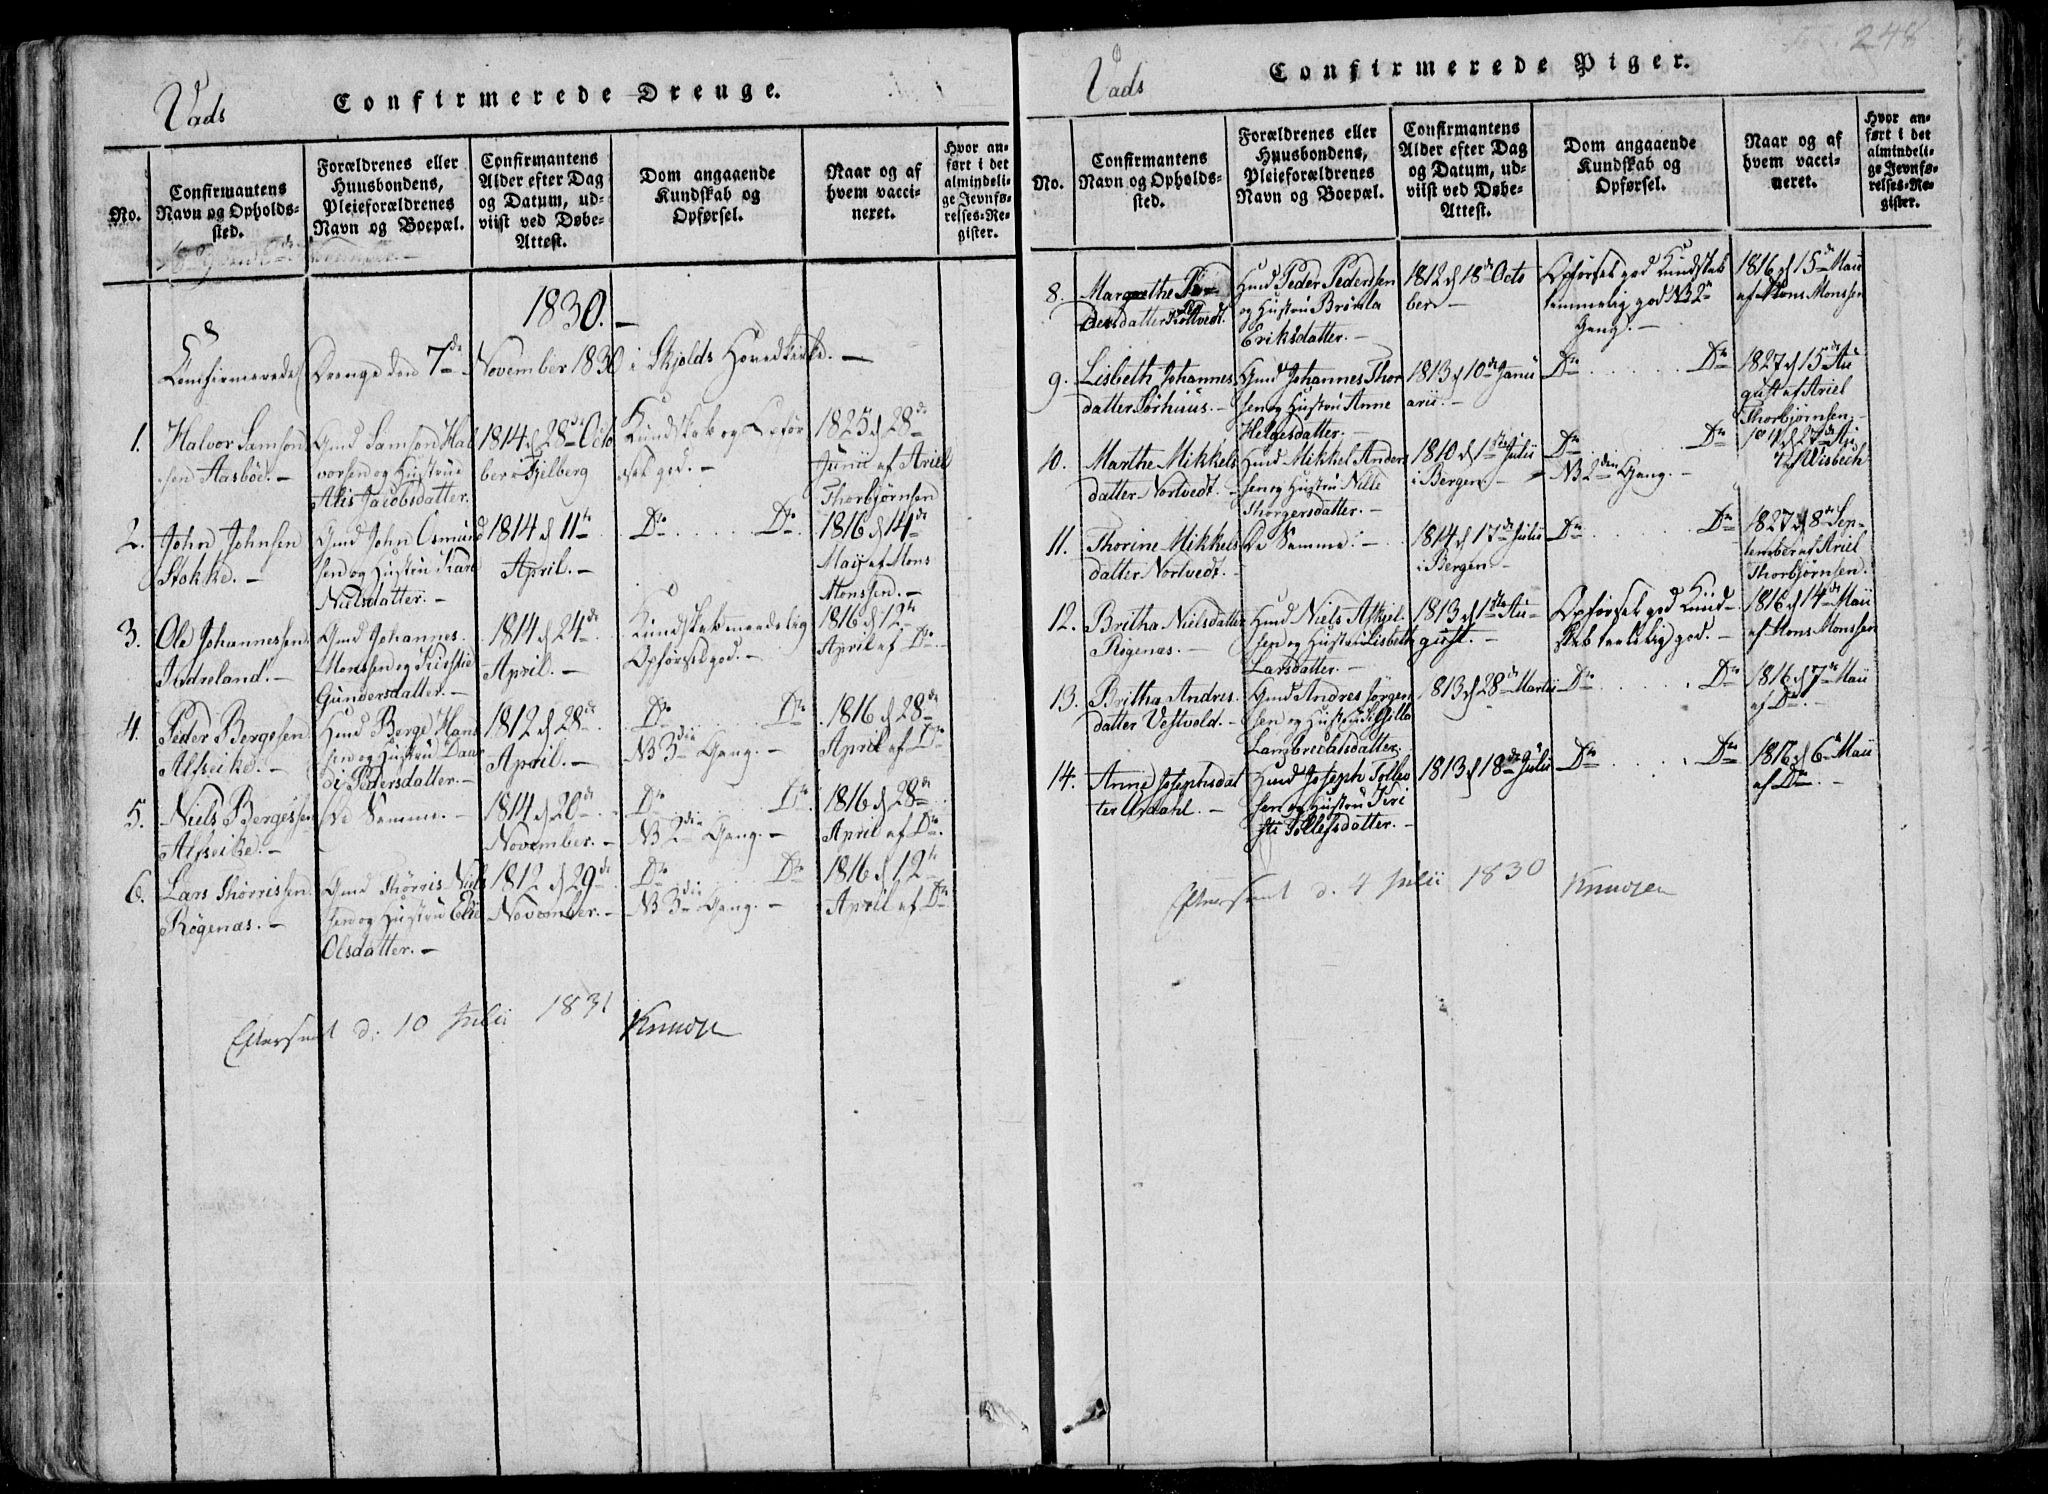 Vads
Confirmerede Drenge.
No.
Confirmantens
Navn og Opholds-
sted.
Forældrenes eller
Huusbondens,
Plejeforældrenes
Navn og Boepæl.
Confirmantens
Alder efter Dag
og Datum, ud-
viist ved Døbe-
Attest.
Dom angaaende
Kundskab og
Opførsel.
Naar og af
hvem vacci-
neret.
Hvor an-
ført i det
almindeli-
ge Jevnfø-
relses-Re-
gister.
1830. –
Confirmerede Drenge den 7de November 1830 i Skjolds Hovedkirke. –
1.
Halvor Samson
sen Aasböe. –
Gmd Samson Hal
vorsen og Hustrue
Alis Jacobsdatter.
1814 d 28de Octo
ber Fjelberg
Kundskab og Opför
sel god. –
1825 d 28de
Junii af Ariel
Thorbjörnsen
2.
John Johnsen
Stokke. –
Gmd John Osmund
sen og Hustru Kari
Nielsdatter. –
1814 d 11te
April. –
Do . . . . . Do
1816 d 14de
Maii af Mons
Monssen. –
3.
Ole Johannessen
Indreland. –
Gmd Johannes
Monssen og Kirstie
Gundersdatter. –
1814 d 24de
April. –
Kundskab maadelig
Opförsel god. –
1816 d 12te
April af Do
4.
Peder Bergesen
Alfseike. –
Hmd Berge Han
sen og Hustru Daar
di Pedersdatter. –
1812 d 28de
April. –
Do . . . . . Do
NB 3die Gang. –
1816 d 28de
April af Do
5.
Niels Bergessen
Alfseike. –
De Samme. –
1814 d 20de
November. –
Do . . . . . Do
NB 2den Gang. –
1816 d 28de
April af Do
6.
Lars Thörrissen
Rögenas. –
Gmd Thörris Niels
sen og Hustru Elie
Olsdatter. –
1812 d 29de
November. –
Do . . . . . Do
NB 3die Gang. –
1816 d 12te
April af Do
Efterseet d. 10 Julii 1831 Knudzen
248
Vads
Confirmerede Piger.
No.
Confirmantens
Navn og Opholds-
sted.
Forældrenes eller
Huusbondens,
Plejeforældrenes
Navn og Boepæl.
Confirmantens
Alder efter Dag
og Datum, ud-
viist ved Døbe-
Attest.
Dom angaaende
Kundskab og
Opførsel.
Naar og af
hvem vacci-
neret.
Hvor an-
ført i det
almindeli-
ge Jevnfø-
relses-Re-
gister.
8.
Margrethe Pe-
dersdatter
Hmd Peder Pederssen
og Hustru Brönla
Eriksdatter. –
1812 d 18de Octo
ber –
Opförsel god Kundskab
temmelig god NB 2den
Gang. –
1816 d 15de Maii
af Mons Monssen
9.
Lisbeth Johannes
datter Sörhuus. –
Gmd Johannes Thor
sen og Hustru Anne
Helgesdatter. –
1813 d 10de Janu
arii. –
Do . . . . . Do
1827 d 15de Au
gust af Ariel
Thorbjörnsen. –
10.
Marthe Mikkels
datter Nortvedt. –
Hmd Mikkel Anders
sen og Hustru Nille
Thorgersdatter. –
1810 d 1ste Julii
i Bergen –
Do . . . . . Do
NB 2den Gang. –
d 27de Au
Wisbech
11.
Thorine Mikkels
datter Nortvedt. –
De Samme. –
1814 d 17de Julii
i Bergen. –
Do . . . . . Do
1827 d 8de Sep-
tember af Ariel
Thorbjörnsen.
12.
Britha Nielsdatter
Rögenas. –
Hmd Niels Askjel
sen og Hustru Lisbeth
Larsdatter. –
1813 d 1ste Au-
gust. –
Opförsel god Kund-
skab taalelig god. –
1816 d 14de Maii
af Mons Monssen
13.
Britha Andres
datter Vestvold. –
Gmd Andres Jörgen
sen og Hustru
Lambrechtsdatter. –
1813 d 28de Martii
Do . . . . . Do
1816 d 7de Maii
af Do. –
14.
Anne Josephsdat
ter
Hmd Joseph Tollev
sen og Hustru Kri
sti Tollefsdatter. –
1813 d 18de Julii
Do . . . . . Do
1816 d 6te Maii
af Do –
Efterseet d. 4 Julii 1830 Knudzen